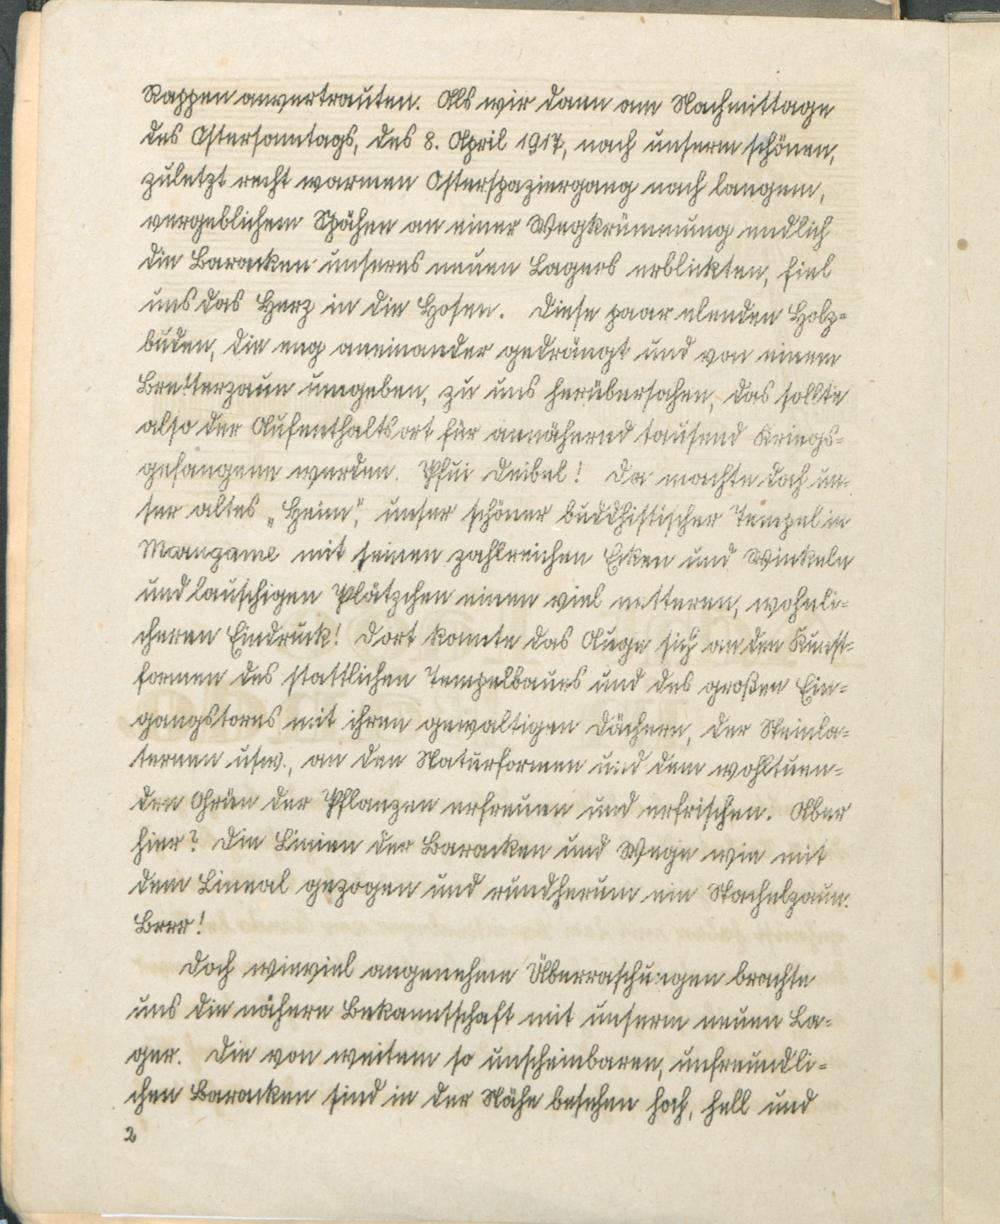 Rappen anvertrauten. Als wir dann am Nachmittage
des Ostersonntags, des 8. April 1917, nach unserm schönen,
zuletzt recht warmen Osterspaziergang nach langem,
vergeblichem Spähen an einer Wegkrümmung endlich
die Baracken unseres neuen Lagers erblickten, fiel
uns das Herz in die Hosen. Diese paar elenden Holz-
buden, die eng aneinander gedrängt und von einem
Bretterzaun umgeben, zu uns herübersahen, das sollte
also der Aufenthaltsort für annähernd tausend Kriegs-
gefangene werden. Pfui Deibel! Da machte doch un-
ser altes „Heim", unser schöner buddhistischer Tempel in
Marugame mit seinen zahlreichen Ecken und Winkeln
und lauschigen Plätzchen einen viel netteren, wohnli-
cheren Eindruck! Dort konnte das Auge sich an den Kunst-
formen des stattlichen Tempelbaues und des großen Ein-
gangstores mit ihren gewaltigen Dächern, der Steinla-
ternen usw., an den Naturformen und dem wohltuen-
den Grün der Pflanzen erfreuen und erfrischen. Aber
hier? Die Linien der Baracken und Wege wie mit
dem Lineal gezogen und rundherum ein Stachelzaun.
Brrr!
Doch wieviel angenehme Überraschungen brachte
uns die nähere Bekanntschaft mit unserm neuen La-
ger. Die von weitem so unscheinbaren, unfreundli-
chen Baracken sind in der Nähe besehen hoch, hell und
2